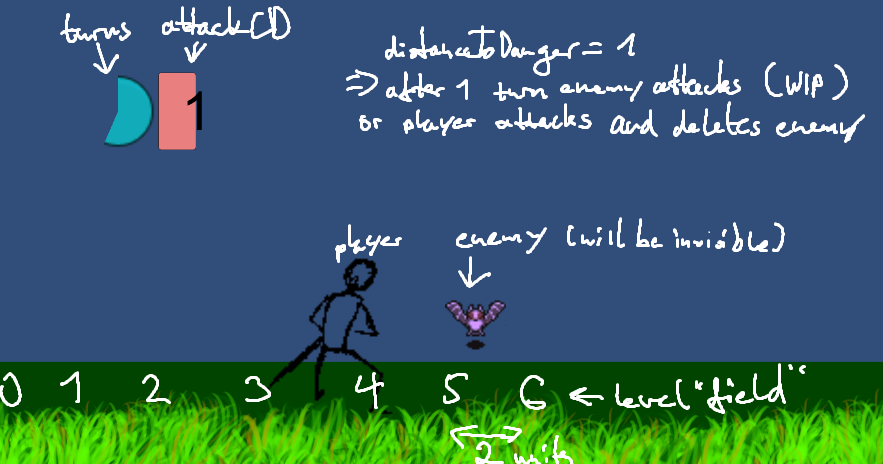 turns attackCD
distanceToDanger = 1
1
=> after 1 turn enemy attacks (WIP)
or player attacks and deletes enemy
player enemy (will be invisible)
0 1 2 3 4 5 6 ← level "field"
2 units